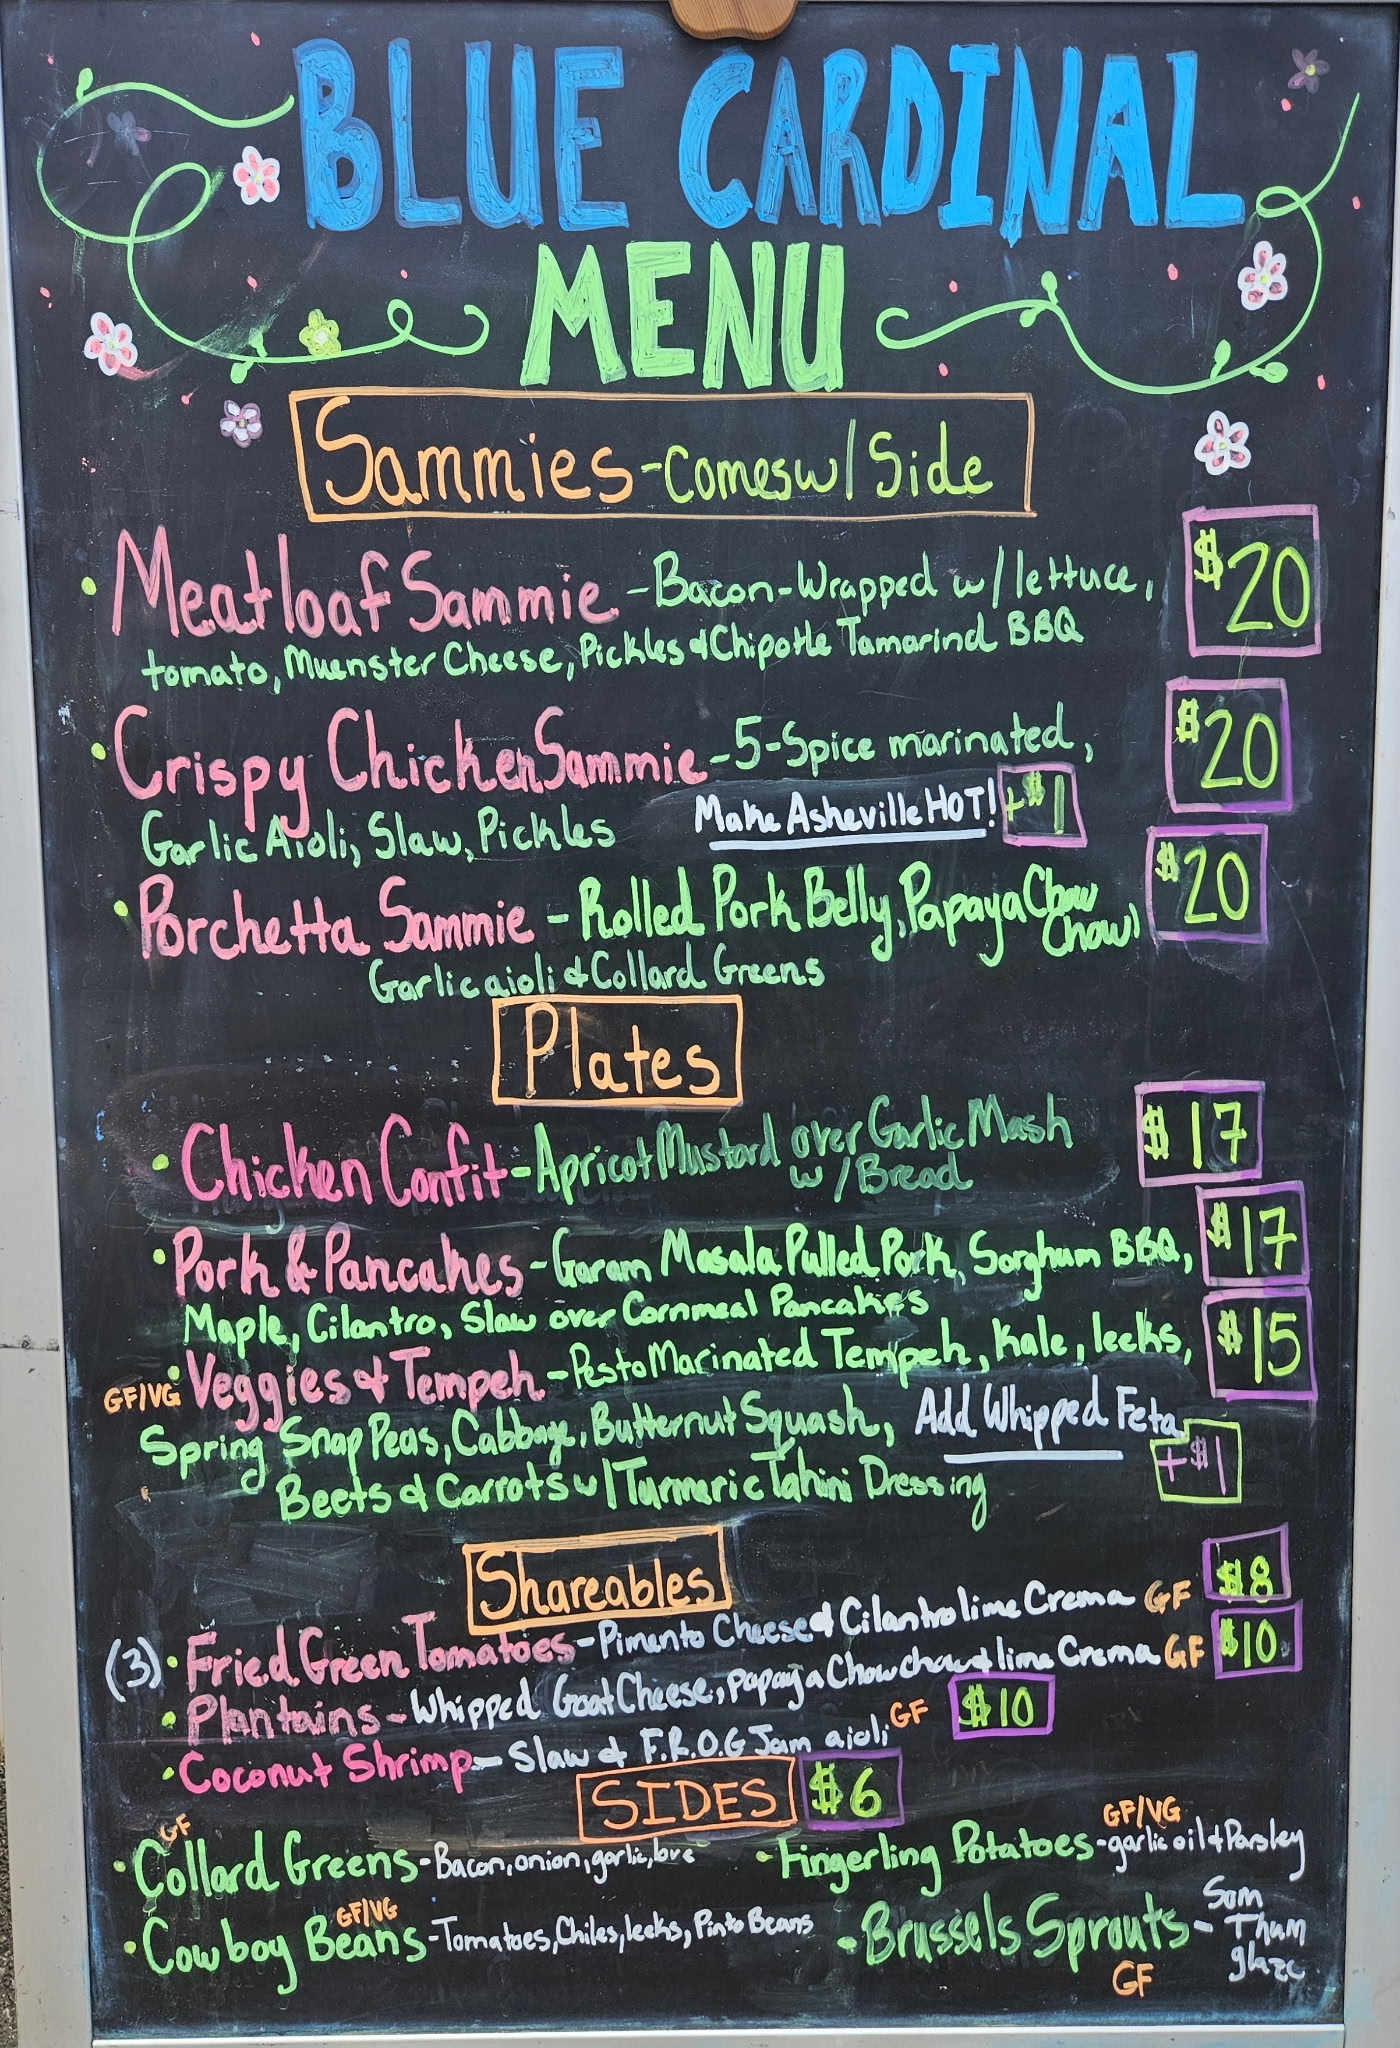 BLUE CARDINAL
MENU
Sammies - Comes w/ Side
• Meatloaf Sammie - Bacon-Wrapped w/ lettuce, $20
tomato, Muenster Cheese, Pickles & Chipotle Tamarind BBQ
• Crispy Chicken Sammie - 5-Spice marinated, $20
Garlic Aioli, Slaw, Pickles Make Asheville HOT! +$1
• Porchetta Sammie - Rolled Pork Belly, Papaya Chow Chow, $20
Garlic aioli & Collard Greens
Plates
• Chicken Confit - Apricot Mustard over Garlic Mash $17
w/ Bread
• Pork & Pancakes - Garam Masala Pulled Pork, Sorghum BBQ, $17
Maple, Cilantro, Slaw over Cornmeal Pancakes
GF/VG • Veggies & Tempeh - Pesto Marinated Tempeh, Kale, leeks, $15
Spring Snap Peas, Cabbage, Butternut Squash, Add Whipped Feta +$1
Beets & Carrots w/ Turmeric Tahini Dressing
Shareables
(3) • Fried Green Tomatoes - Pimento Cheese & Cilantro lime Crema GF $8
• Plantains - Whipped Goat Cheese, papaya Chow chow & lime Crema GF $10
• Coconut Shrimp - Slaw & F.R.O.G Jam aioli GF $10
SIDES $6
• Collard Greens GF - Bacon, onion, garlic, love
• Fingerling Potatoes - GF/VG garlic oil & Parsley
• Cowboy Beans GF/VG - Tomatoes, Chiles, leeks, Pinto Beans
• Brussels Sprouts - Som Tham glaze
GF